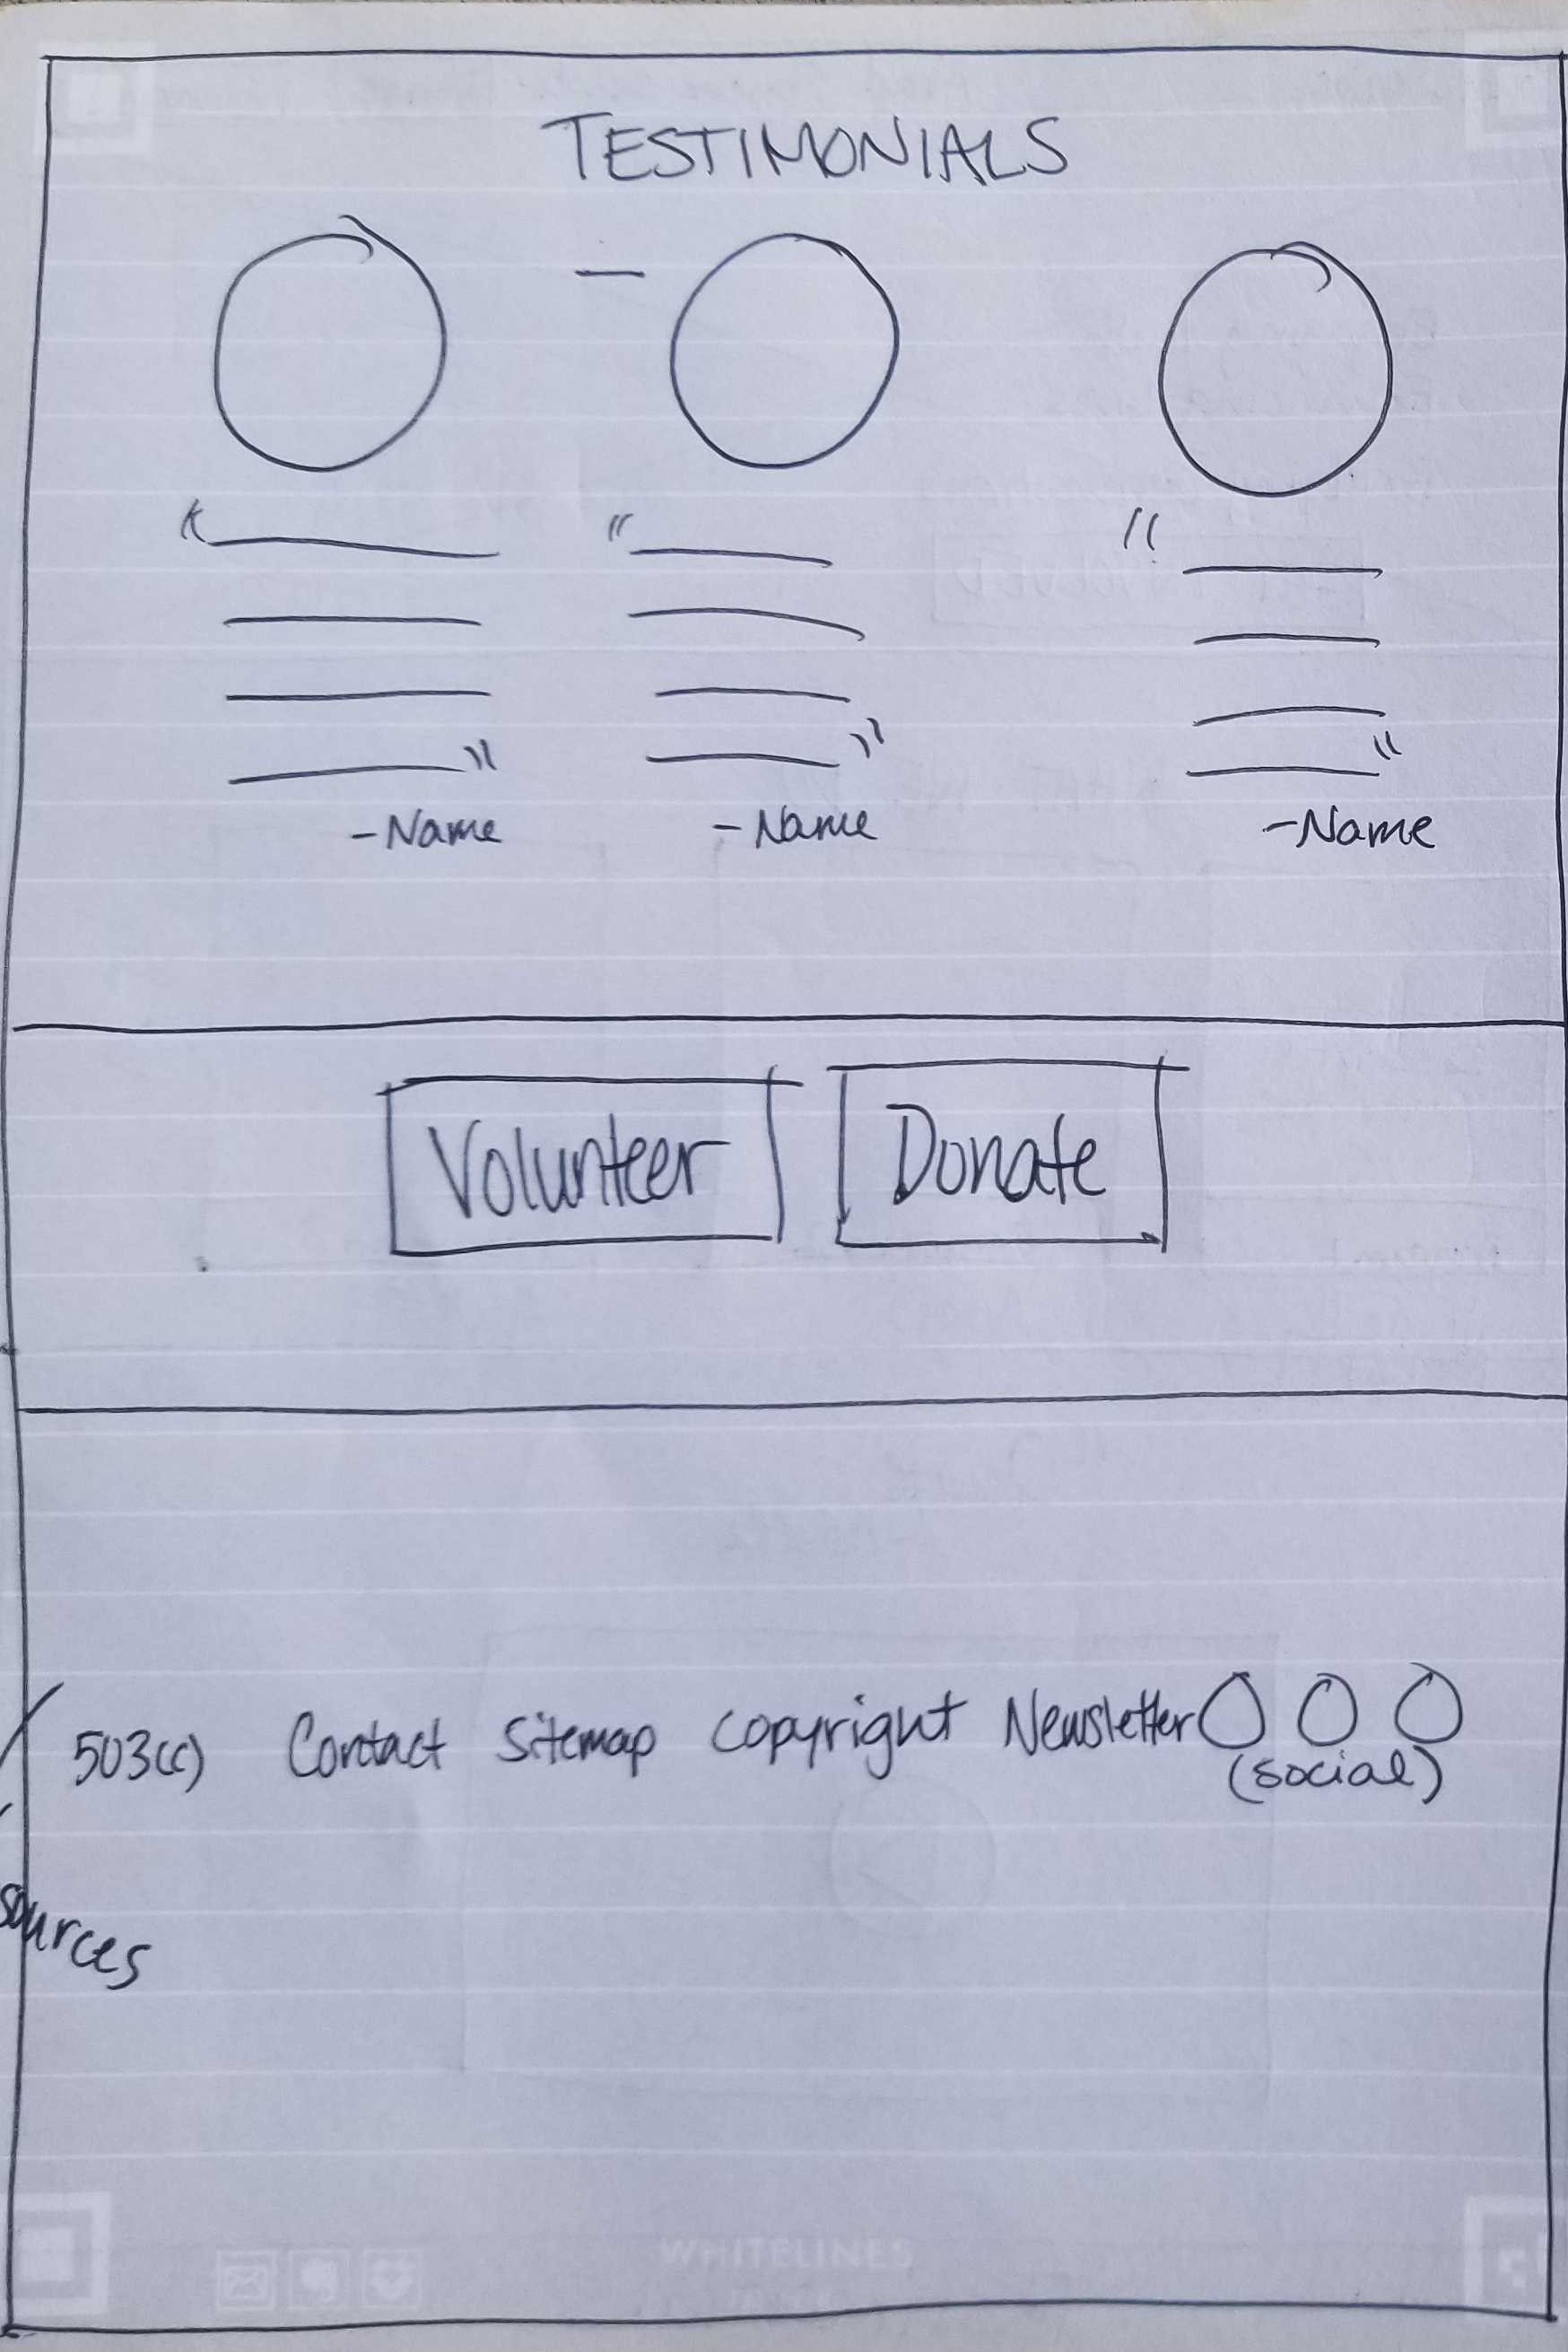 TESTIMONIALS
“ ” “ ” “ “
-Name -Name -Name
Volunteer Donate
503(c) Contact Sitemap Copyright Newsletter
(social)
sources
WHITELINES